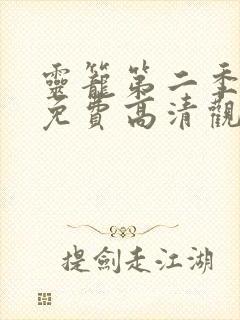 靈籠第二季
免費高清觀
提劍走江湖